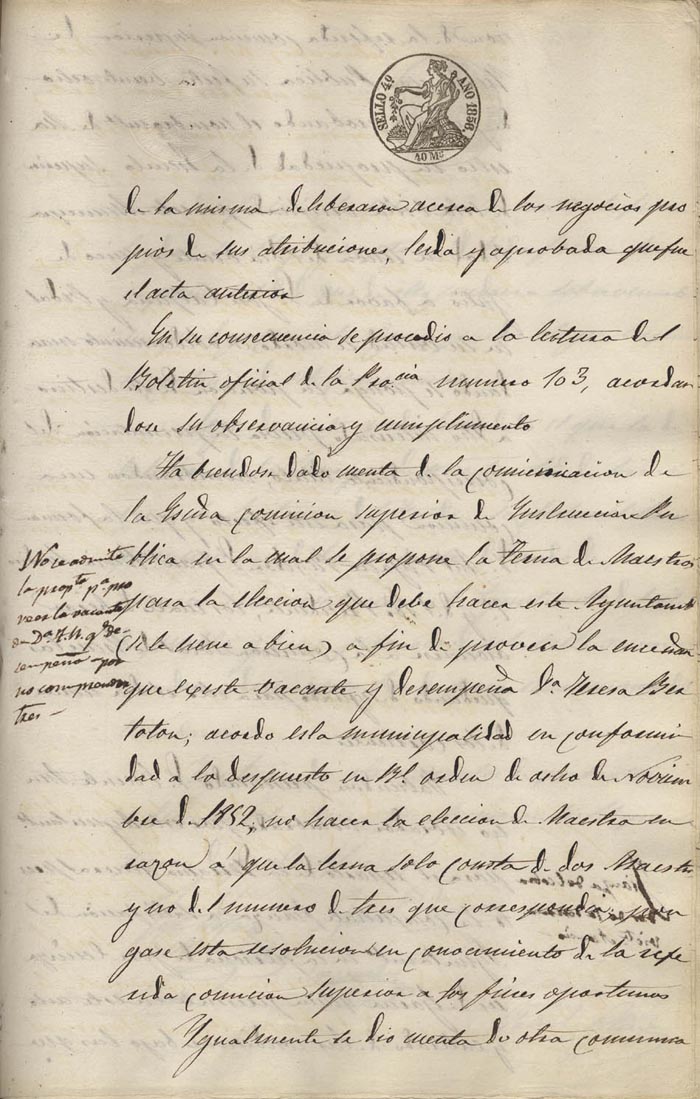 SELLO 4º AÑO 1858
40 Mˢ
de la misma deliberaron acerca de los negocios pro
pios de sus atribuciones, leida y aprobada que fue
el acta anterior
En su consecuencia se procedio a la lectura del
Boletin oficial de la Pro.cia numero 103, acordan
dose su observancia y cumplimento
Habiendose dado cuenta de la comunicacion de
la comicion superior de Instruccion Pu
blica en la cual se propone la terna de Maestras
para la eleccion que debe hacer este Ayuntamto
(si lo tiene a bien) a fin de proveer la
que existe vacante y desempeña Dª Teresa Ber
toton; acordo esta municipalidad en conformi
dad a lo despuesto en Rl. orden de ocho de Noviem
bre de 1852, no hacer la eleccion de Maestra en
razon á que la terna solo consta de dos Maestras
y no del numero de tres que corresponde; pon
gase esta resolucion en conocimiento de la refe
rida comicion superior a los fines oportunos
Ygualmente se dio cuenta de otra comunica
No se admite
la propta pª pro
veer la vacante
Dª T. B. qe de-
sempeña por
no comprender
tres